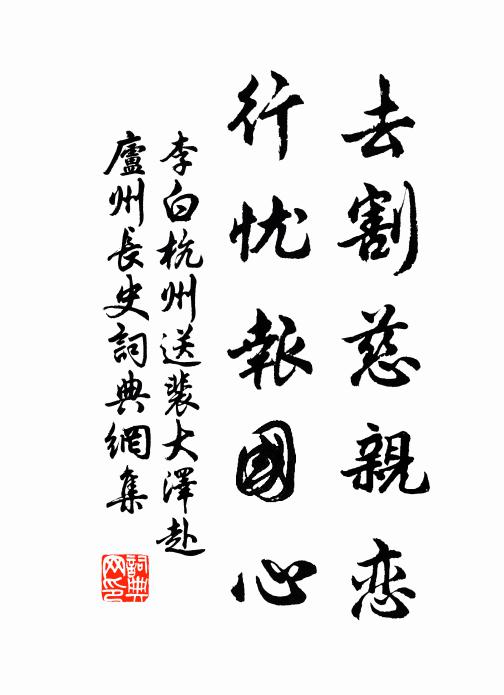 去割慈親恋
行忧報國心
李白杭州送裴大澤赴
廬州長史詞典網集
詞典
网印